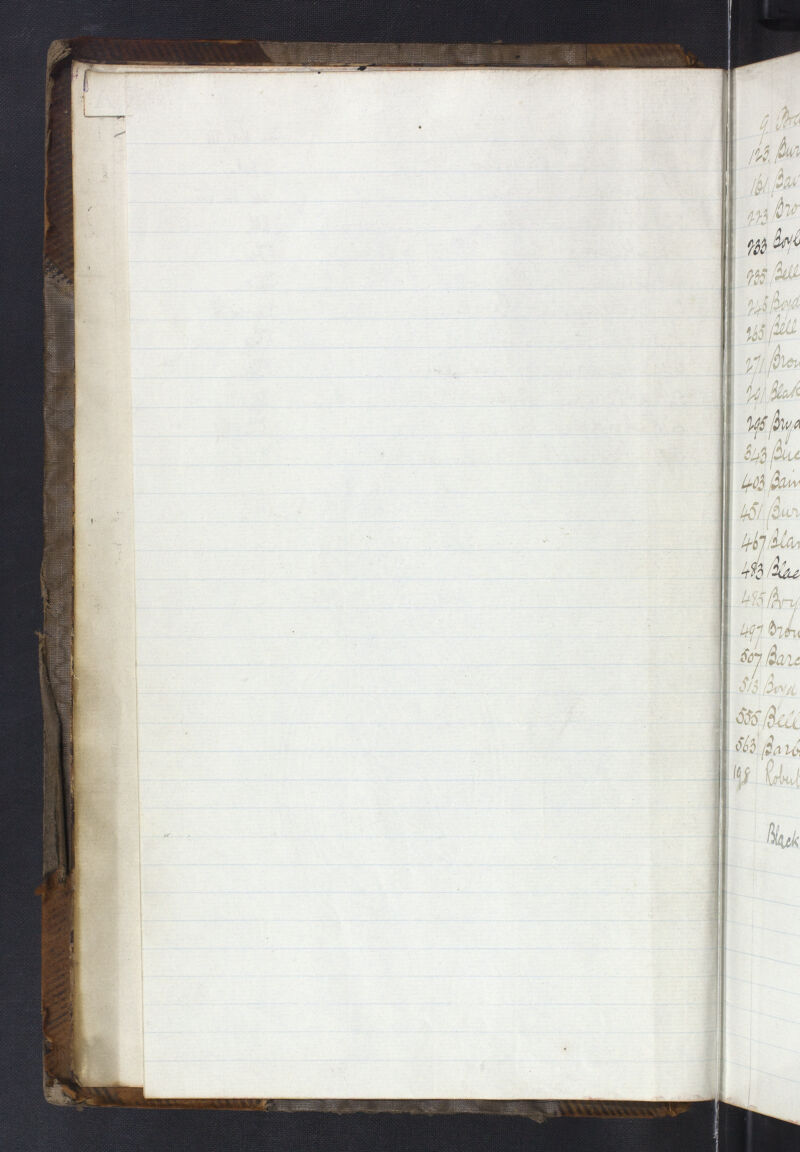 9 Bro
123 Bur
161 Bai
223 Bro
233 Boyl
235 Bell
245 Boyd
265 Bell
271 Brow
291 Blak
295 Bryd
343 Buc
403 Bain
451 Bur
467 Blan
483 Blac
485 Boy
497 Brow
507 Barc
513 Boyd
555 Bell
563 Barb
198 Robert
Black